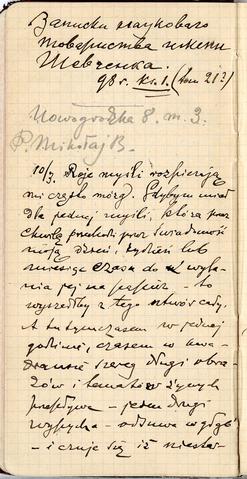 Записки наукового
товариства імени
Шевченка.
98 r. Кн. 1. (том 21?)
Nowogrodzka 8. m. 3.
P. Mikołaj B.
10/3. Roje myśli rozpierają
mi często mózg. Gdybym miał
dla jednej myśli, która przez
chwilę przechodzi przez świadomość
moją dzień, tydzień lub
miesiąc czasu do wyla-
nia jej na papier - to
wyszedłby z tego utwór cały.
A tu tymczasem w jednej
godzinie, czasem w kwa-
dransie szereg długi obra-
zów i tematów żywych
przepływa - jeden drugi
wypycha - odsuwa w głąb
- i czuje się iż